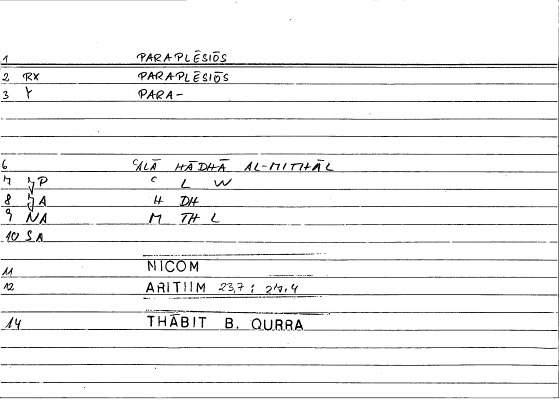 1 PARAPLĒSIŌS
2 RX PARAPLĒSIŌS
3 Y PARA-
6 ʿALĀ HĀDHĀ AL-MITHĀL
7 JP ʿ L W
8 JA H DH
9 NA M TH L
10 SA
11 NICOM
12 ARITHM 23,7 : 24,4
14 THĀBIT B. QURRA